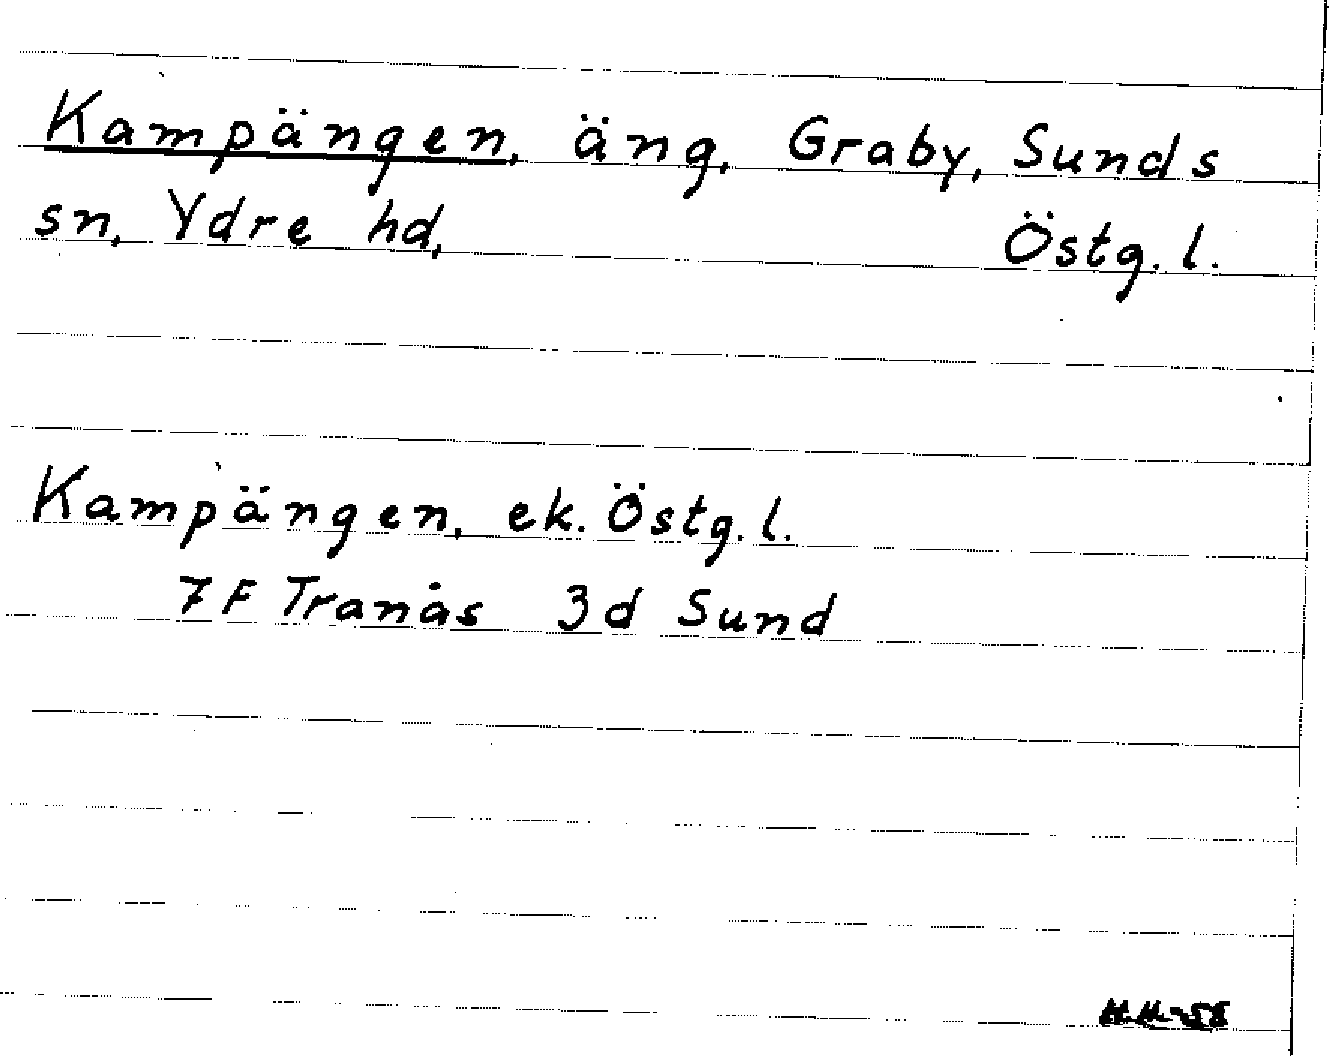 Kampängen, äng, Graby, Sunds
sn, Ydre hd, Östg. l.
Kampängen, ek. Östg. l.
7 F Tranås 3d Sund